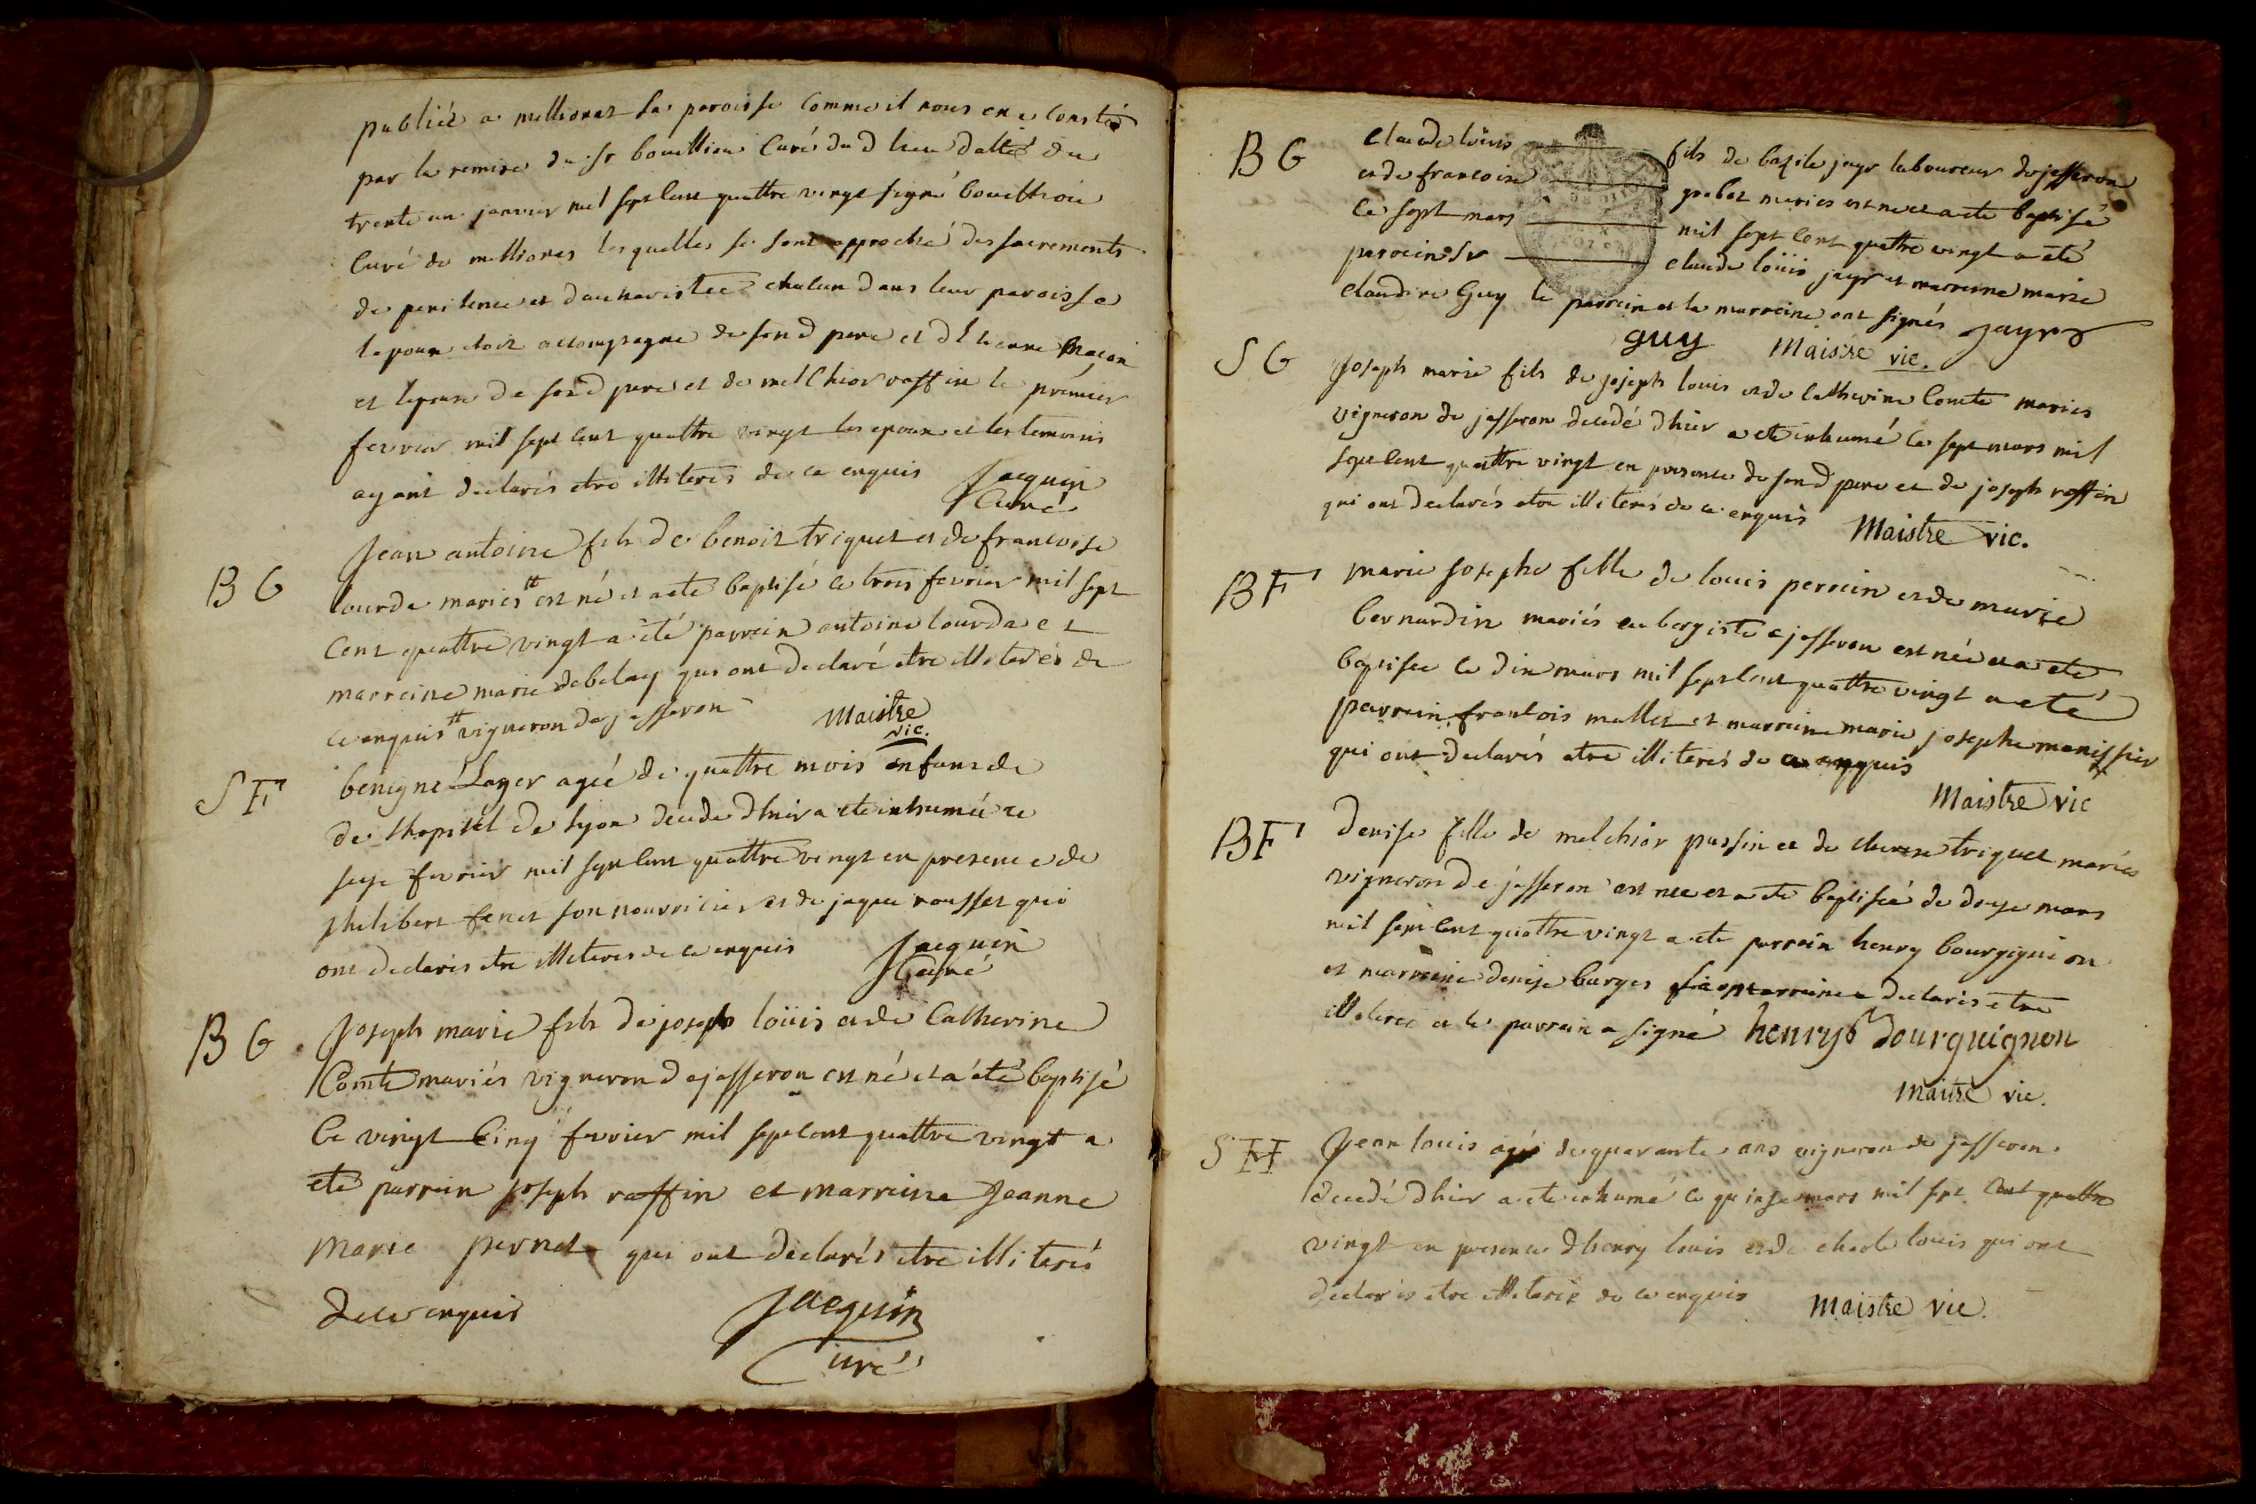 publiée a mellionas sa paroisse comme il nous en a consté
par la remise du sr bouillon curé dud lieu datté du
trente un janvier mil sept cent quattre vingt signé
curé de mellionas lesquelles se sont approché des sacrements
de penitence et deucharistee chacun dans leur paroisse
lepoux etoit accompagné de son d pere et detienne maçon
et lepouse de son d pere et de melchior raffin le prémier
fevrier mil sept cent quattre vingt les epoux et les temoins
ayant declarés etre illiterés de ce enquis Jacquin
Curé
B G
Jean antoine fils de benoit triquet et de francoise
lourda mariés # est né et a eté baptisé ce trois fevrier mil sept
cent quattre vingt a été parrein antoine lourda et
marreine marie debelay qui ont declaré etre illiterés de
ce enquis # vigneron de jasseron Maistre
vic.
S F
benigne Lager ageé de quattre mois enfans de
de lhopital de lyon decedé dhier a eté inhumée ce
seize fevrier mil sept cent quattre vingt en presence de
philibert fenet son nourricier et de jaque rousset qui
ont declarés etre illiteres de ce enquis Jacquin
Curé
B G
Joseph marie fils de joseph loüis et de Catherine
Comte mariés vigneron de jasseron est né et a été baptisé
le vingt cinq fevrier mil sept cent quattre vingt a
eté parrein joseph raffin et marreine Jeanne
Marie pernet qui ont déclarés etre illiterés
de ce enquis Jacquin
Curé
B G
Claude loüis fils de bazile jayr laboureur de jasseron
et de francoise gabet mariés est né et a eté baptisé
ce sept mars mil sept cent quattre vingt a eté
parrein sr claude loüis jayr et marreine marie
claudine Guy le parrein et la marreine ont signés Jayr
guy Maistre vic.
S G
Joseph marie fils de joseph louis et de catherine comte mariés
vigneron de jasseron decedé dhier a eté inhumé ce sept mars mil
sept cent quattre vingt en presence de son d pere et de joseph raffin
qui ont declarés etre illiterés de ce enquis Maistre vic.
B F
marie josephe fille de louis perrein et de marie
bernardin mariés aubergiste a jasseron est née et a eté
baptisée ce dix mars mil sept cent quattre vingt a eté
parrein francois mallet et marreine marie josephe manissier
qui ont declarés etre illiterés de ce enquis
Maistre vic
B F
denise fille de melchior pussin et de triquet mariés
vigneron de jasseron est née et a eté baptiseé de douze mars
mil sept cent quattre vingt a eté parrein henry bourgignion
et marreine denise burges declarés etre
illiterée et le parrein a signé henry bourguignon
Maistre vic.
S H
Jean louis agé de quarante ans vigneron de jasseron
decedé dhier a eté inhumé ce quinze mars mil sept cent quattre
vingt en presence dhenry louis et de charle louis qui ont
declarés etre illiterés de ce enquis Maistre vic.